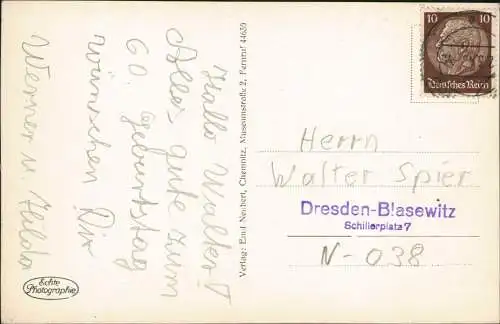 Hallo Walter!
Alles gute zum
60. Geburtstag
wünschen Dir
Werner u. Hilda
Echte
Photographie
Verlag: Emil Neubert, Chemnitz, Museumstraße 2, Fernruf 44639
10 10
Deutsches Reich
Herrn
Walter Spier
Dresden-Blasewitz
Schillerplatz 7
N-038